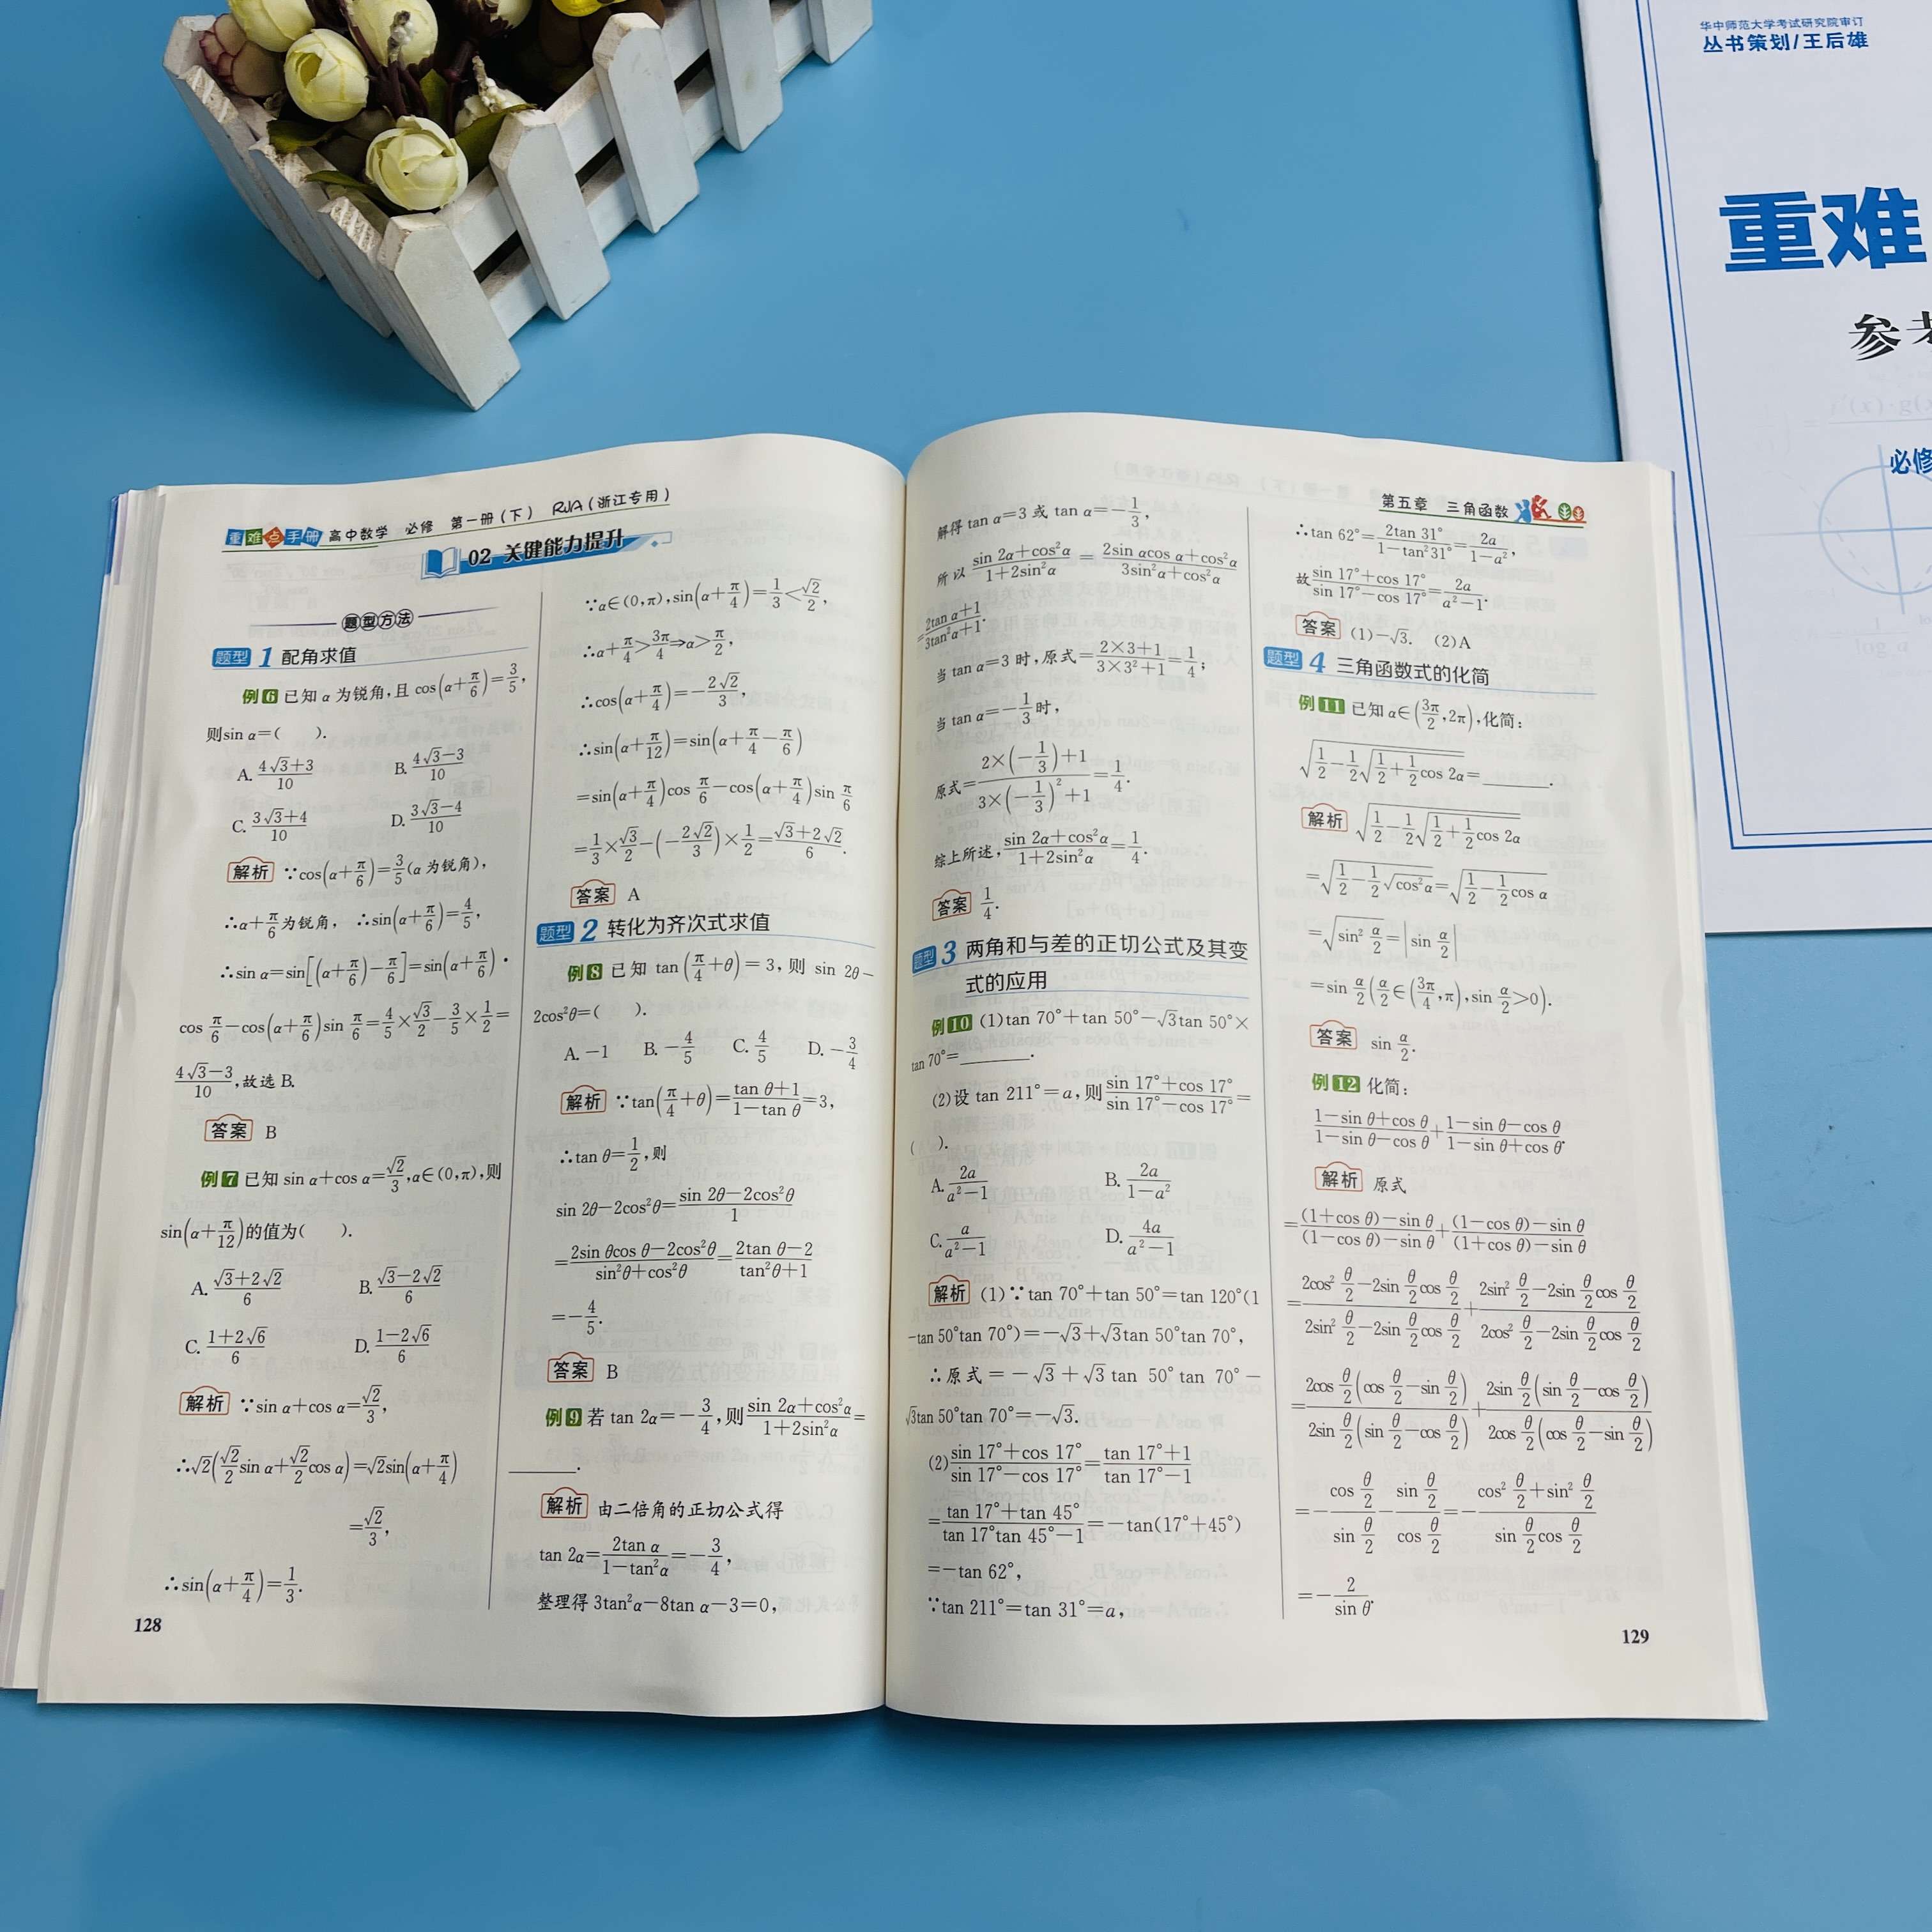 重难点手册 高中数学 必修 第一册(下) RJA(浙江专用)
02 关健能力提升
题型方法
题型1 配角求值
例6 已知 α 为锐角,且 cos(α+π/6)=3/5,
则sin α=( ).
A. (4√3+3)/10 B. (4√3−3)/10
C. (3√3+4)/10 D. (3√3−4)/10
解析 ∵cos(α+π/6)=3/5(α 为锐角),
∴α+π/6为锐角, ∴sin(α+π/6)=4/5,
∴sin α=sin[(α+π/6)−π/6]=sin(α+π/6)·
cos π/6−cos(α+π/6)sin π/6=4/5×√3/2−3/5×1/2=
(4√3−3)/10,故选 B.
答案 B
例7 已知 sin α+cos α=√2/3,α∈(0,π),则
sin(α+π/12)的值为( ).
A. (√3+2√2)/6 B. (√3−2√2)/6
C. (1+2√6)/6 D. (1−2√6)/6
解析 ∵sin α+cos α=√2/3,
∴√2(√2/2 sin α+√2/2 cos α)=√2sin(α+π/4)
=√2/3,
∴sin(α+π/4)=1/3.
128
∵α∈(0,π),sin(α+π/4)=1/3<√2/2,
∴α+π/4>3π/4⇒α>π/2,
∴cos(α+π/4)=−2√2/3,
∴sin(α+π/12)=sin(α+π/4−π/6)
=sin(α+π/4)cos π/6−cos(α+π/4)sin π/6
=1/3×√3/2−(−2√2/3)×1/2=(√3+2√2)/6.
答案 A
题型2 转化为齐次式求值
例8 已知 tan(π/4+θ)=3,则 sin 2θ−
2cos²θ=( ).
A. −1 B. −4/5 C. 4/5 D. −3/4
解析 ∵tan(π/4+θ)=(tan θ+1)/(1−tan θ)=3,
∴tan θ=1/2,则
sin 2θ−2cos²θ=(sin 2θ−2cos²θ)/1
=(2sin θcos θ−2cos²θ)/(sin²θ+cos²θ)=(2tan θ−2)/(tan²θ+1)
=−4/5.
答案 B
例9 若 tan 2α=−3/4,则(sin 2α+cos²α)/(1+2sin²α)=
______.
解析 由二倍角的正切公式得
tan 2α=2tan α/(1−tan²α)=−3/4,
整理得 3tan²α−8tan α−3=0,
解得 tan α=3 或 tan α=−1/3,
所以 (sin 2α+cos²α)/(1+2sin²α) = (2sin αcos α+cos²α)/(3sin²α+cos²α)
=(2tan α+1)/(3tan²α+1).
当 tan α=3 时,原式=(2×3+1)/(3×3²+1)=1/4;
当 tan α=−1/3时,
原式=(2×(−1/3)+1)/(3×(−1/3)²+1)=1/4.
综上所述,(sin 2α+cos²α)/(1+2sin²α)=1/4.
答案 1/4.
题型3 两角和与差的正切公式及其变
式的应用
例10 (1)tan 70°+tan 50°−√3tan 50°×
tan 70°=______.
(2)设 tan 211°=a,则(sin 17°+cos 17°)/(sin 17°−cos 17°)=
( ).
A. 2a/(a²−1) B. 2a/(1−a²)
C. a/(a²−1) D. 4a/(a²−1)
解析 (1)∵tan 70°+tan 50°=tan 120°(1
−tan 50°tan 70°)=−√3+√3tan 50°tan 70°,
∴原式=−√3+√3 tan 50°tan 70°−
√3tan 50°tan 70°=−√3.
(2)(sin 17°+cos 17°)/(sin 17°−cos 17°)=(tan 17°+1)/(tan 17°−1)
=(tan 17°+tan 45°)/(tan 17°tan 45°−1)=−tan(17°+45°)
=−tan 62°,
∵tan 211°=tan 31°=a,
第五章 三角函数
∴tan 62°=2tan 31°/(1−tan²31°)=2a/(1−a²),
故(sin 17°+cos 17°)/(sin 17°−cos 17°)=2a/(a²−1).
答案 (1)−√3. (2)A
题型4 三角函数式的化简
例11 已知 α∈(3π/2,2π),化简:
√(1/2−1/2√(1/2+1/2cos 2α))=______.
解析 √(1/2−1/2√(1/2+1/2cos 2α))
=√(1/2−1/2√(cos²α))=√(1/2−1/2cos α)
=√(sin² α/2)=|sin α/2|
=sin α/2(α/2∈(3π/4,π),sin α/2>0).
答案 sin α/2.
例12 化简:
(1−sin θ+cos θ)/(1−sin θ−cos θ)+(1−sin θ−cos θ)/(1−sin θ+cos θ).
解析 原式
=((1+cos θ)−sin θ)/((1−cos θ)−sin θ)+((1−cos θ)−sin θ)/((1+cos θ)−sin θ)
=(2cos² θ/2−2sin θ/2cos θ/2)/(2sin² θ/2−2sin θ/2cos θ/2)+(2sin² θ/2−2sin θ/2cos θ/2)/(2cos² θ/2−2sin θ/2cos θ/2)
=(2cos θ/2(cos θ/2−sin θ/2))/(2sin θ/2(sin θ/2−cos θ/2))+(2sin θ/2(sin θ/2−cos θ/2))/(2cos θ/2(cos θ/2−sin θ/2))
=−(cos θ/2)/(sin θ/2)−(sin θ/2)/(cos θ/2)=−(cos² θ/2+sin² θ/2)/(sin θ/2cos θ/2)
=−2/sin θ.
129
华中师范大学考试研究院审订
丛书策划/王后雄
重难
参考
必修